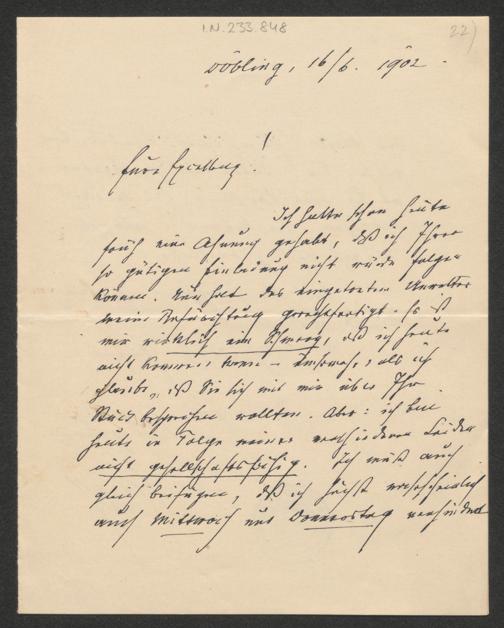 I.N. 233.848
22)
Döbling, 16/6. 1902.
Eure Excellenz!
Ich hatte schon heute
früh eine Ahnung gehabt, daß ich Ihrer
so gütigen Einladung nicht würde folgen
können. Nun hat das eingetretene Unwetter
meine Befürchtung gerechtfertigt. Es ist
mir wirklich ein Schmerz, daß ich heute
nicht kommen kann – umsomehr, als ich
glaube, daß Sie sich mit mir über Ihr
Stück besprechen wollten. Aber: ich bin
heute in Folge meiner verschiedenen Leiden
nicht gesellschaftsfähig. Ich muß auch
gleich beifügen, daß ich höchst wahrscheinlich
auch Mittwoch und Donnerstag verhindert